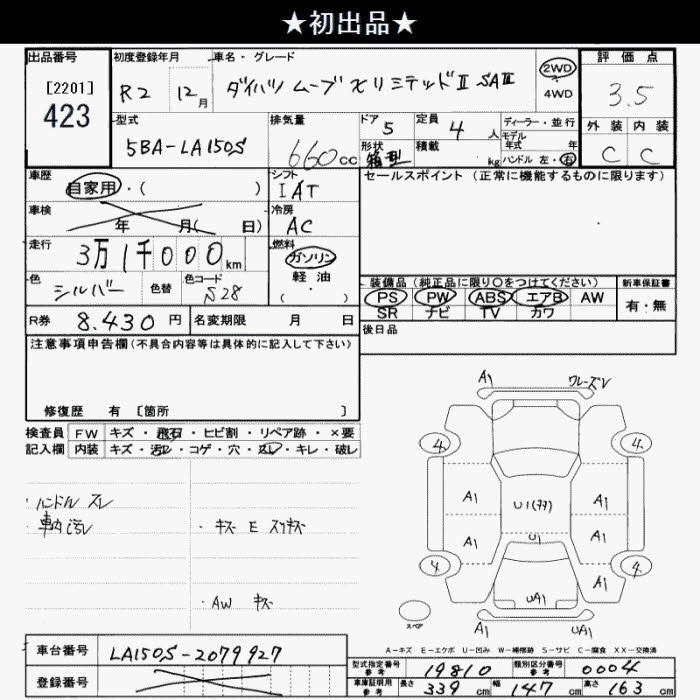 ★初出品★
出品番号
[2201]
423
初度登録年月
R2 12月
車名・グレード
ダイハツ ムーブ X リミテッドⅡ SAⅢ
2WD
4WD
評価点
3.5
外装 内装
C C
型式
5BA-LA150S
排気量
660cc
ドア 5
形状 箱型
定員 4人
積載 kg
ディーラー・並行
モデル
年式 年
ハンドル 左・右
車歴
自家用・( )
シフト
IAT
セールスポイント (正常に機能するものに限ります)
車検
年 月( 日)
冷房
AC
走行
3万1千000km
燃料
ガソリン
軽・油
・( )
色
シルバー
色替
色コード
S28
装備品 (純正品に限り〇をつけてください)
PS PW ABS エアB AW
SR ナビ TV カワ
新車保証書
有・無
R券 8.430円
名変期限 月 日
後日品
注意事項申告欄(不具合内容等は具体的に記入して下さい)
修復歴 有 [箇所 ]
検査員
記入欄
FW キズ・飛石・ヒビ割・リペア跡・×要
内装 キズ・汚レ・コゲ・穴・スレ・キレ・破レ
・ハンドル スレ
・車内汚レ
・キズ E スリキズ
・AW キズ
A1
ワレーズV
4 4
A1 U1(ﾀﾀ) A1
A1 U1 A1
4 A1 4
UA1
スペア
A1 UA1
A-キズ E-エクボ U-凹み W-補修跡 S-サビ C-腐食 XX-交換済
車台番号 LA150S-2079927
登録番号
型式指定番号
参考
19810
類別区分番号
参考
0004
車庫証明用
参考
長さ 339cm
幅 147cm
高さ 163cm